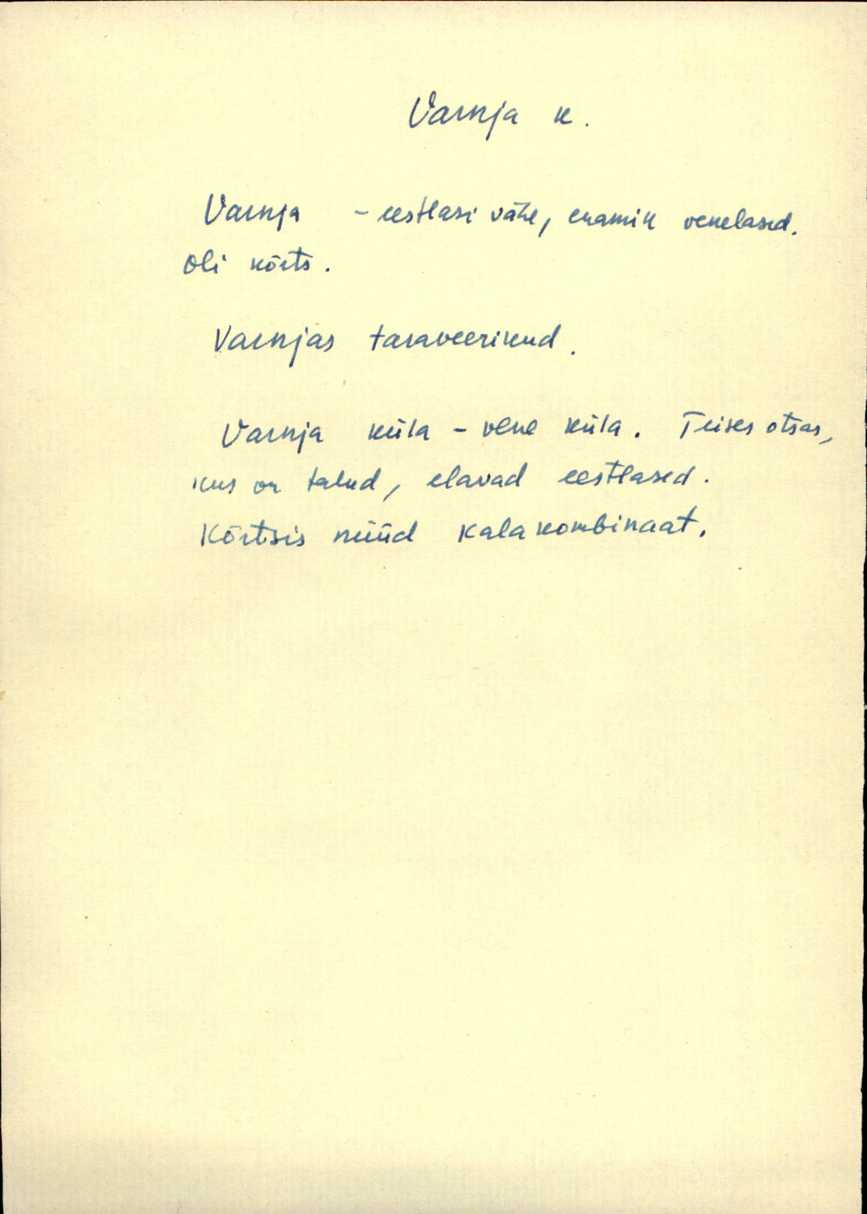 Varnja k.
Varnja - eestlasi vähe, enamik venelased.
Oli kõrts.
Varnjas taraveerikud.
Varnja küla - vene küla. Teises otsas,
kus on talud, elavad eestlased.
Kõrtsis nüüd kalakombinaat.